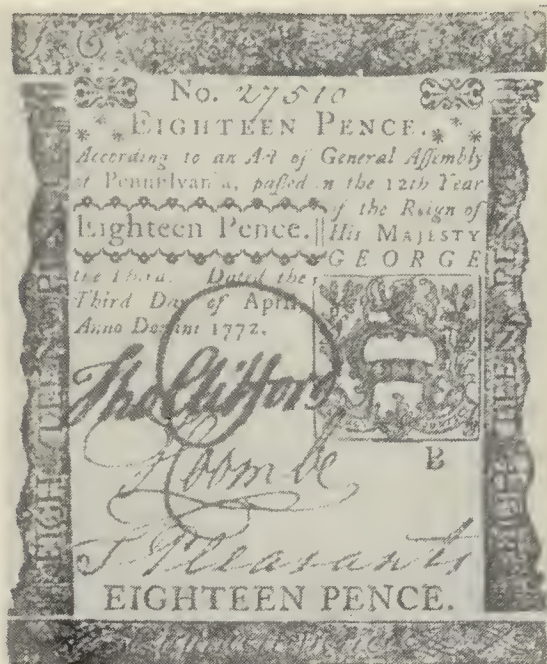 No. 27510
EIGHTEEN PENCE.
According to an Act of General Aſſembly
of Pennſylvania, paſſed in the 12th Year
of the Reign of
Eighteen Pence. His MAJESTY
GEORGE
the Third. Dated the
Third Day of April,
Anno Domini 1772.
Tho Clifford
B
T Pleasants
EIGHTEEN PENCE.
EIGHTEEN PENCE
EIGHTEEN PENCE